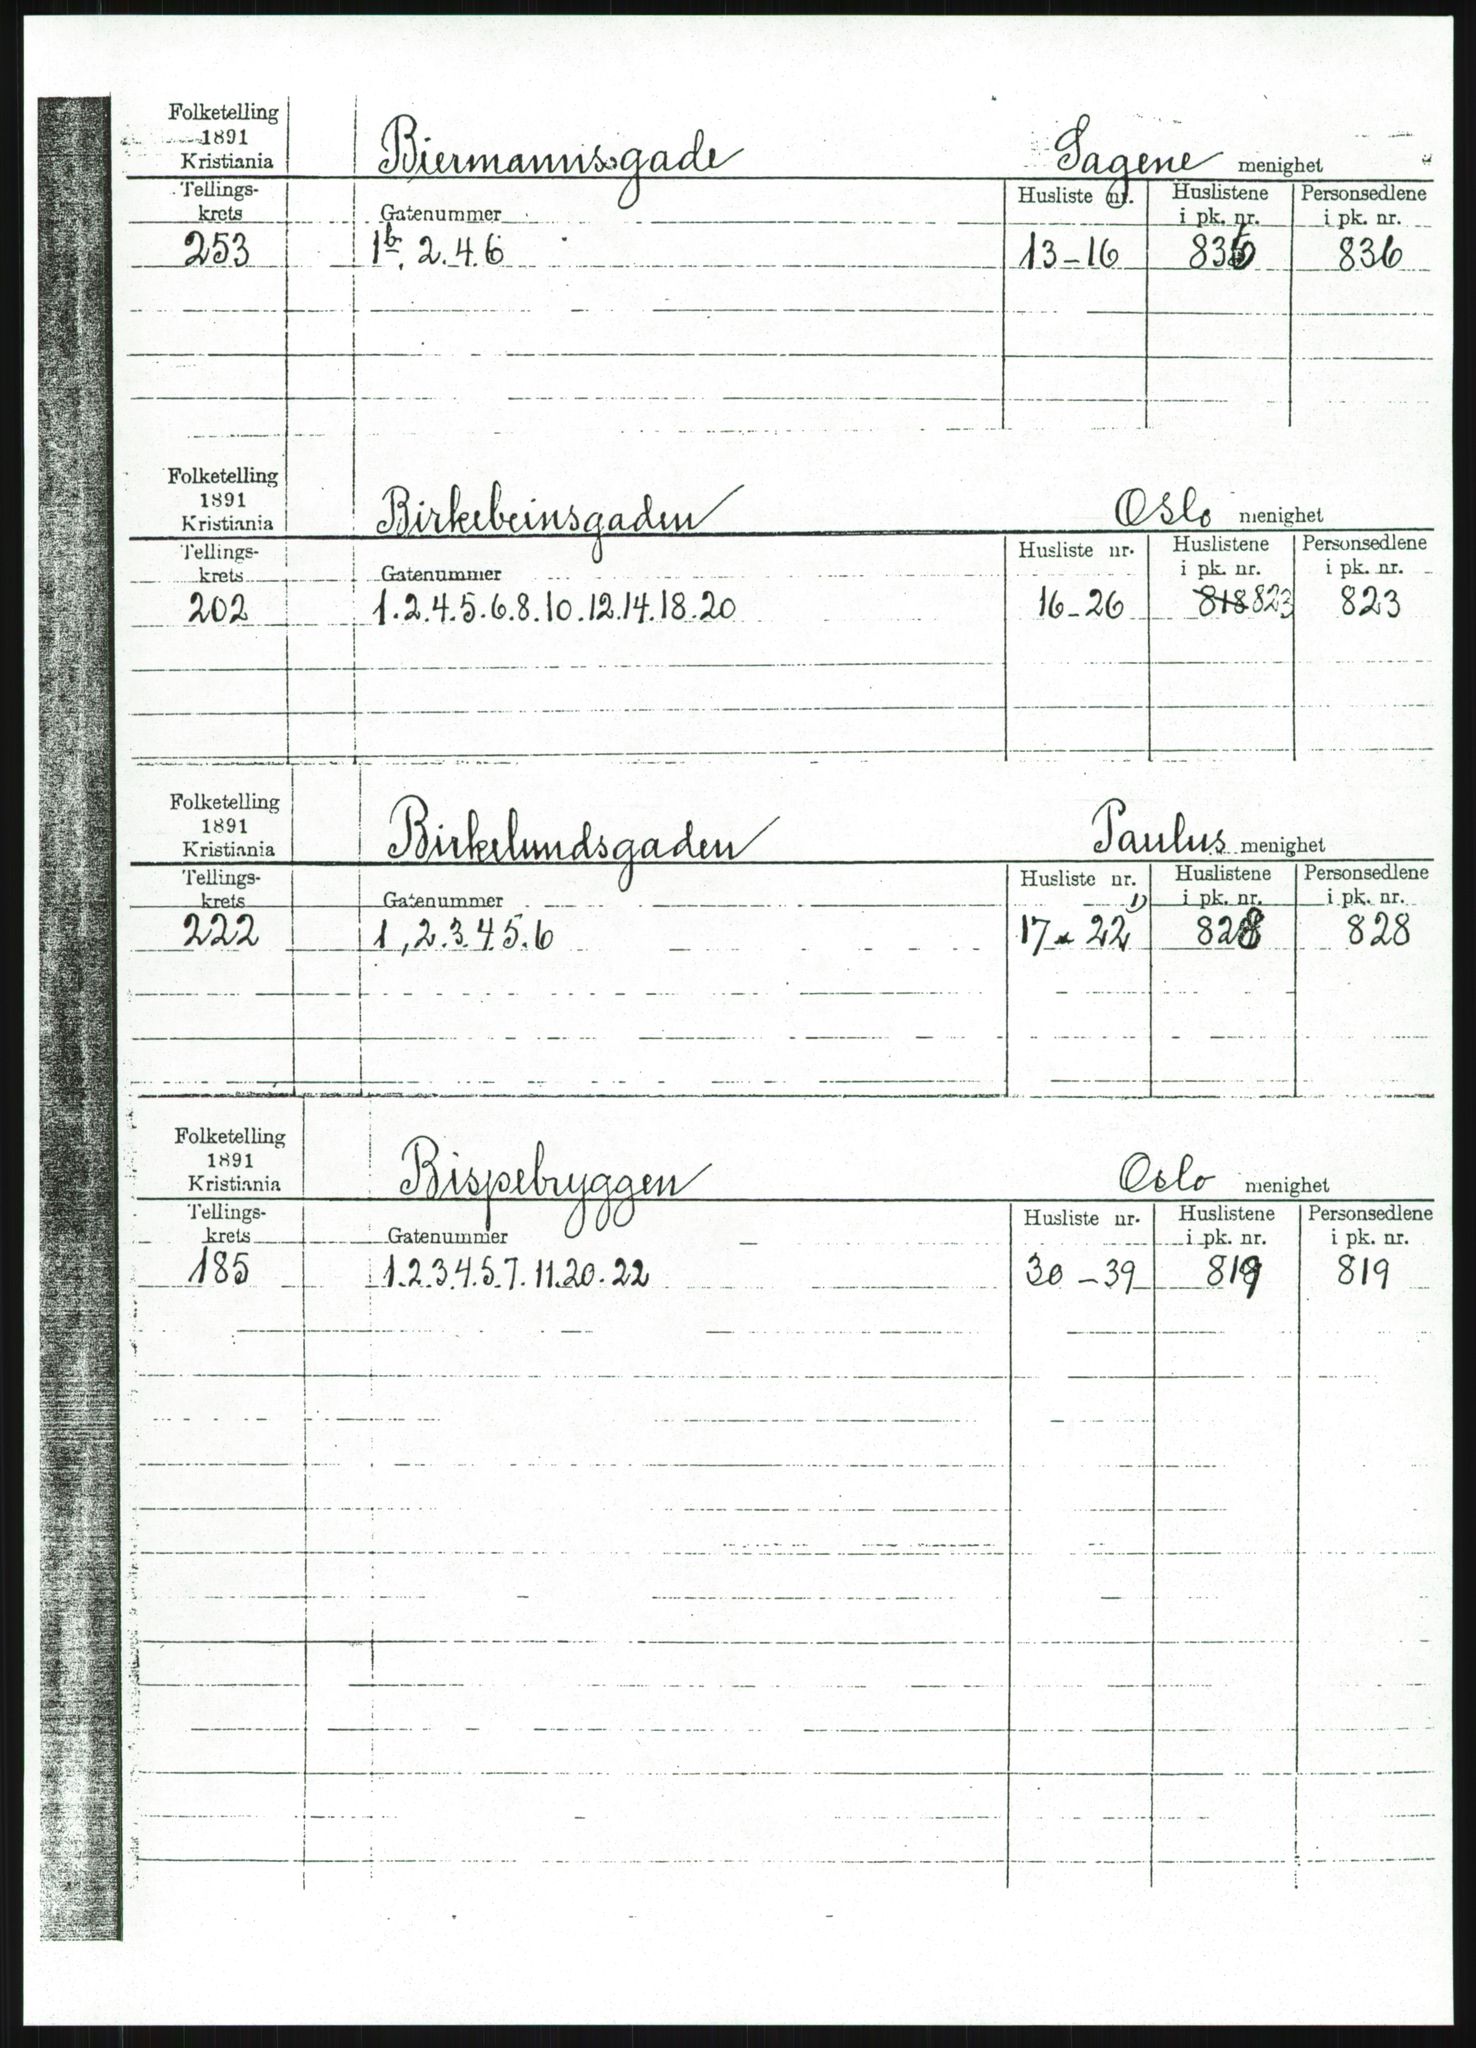 Folketelling
1891
Kristiania
Biermannsgade
Sagene menighet
Tellings-
krets
Gatenummer
Husliste nr.
Huslistene
i pk. nr.
Personsedlene
i pk. nr.
253
1b. 2. 4. 6
13-16
836
836
Folketelling
1891
Kristiania
Birkebeinsgaden
Oslo menighet
Tellings-
krets
Gatenummer
Husliste nr.
Huslistene
i pk. nr.
Personsedlene
i pk. nr.
202
1.2.4.5.6.8.10.12.14.18.20
16-26
818 823
823
Folketelling
1891
Kristiania
Birkelundsgaden
Paulus menighet
Tellings-
krets
Gatenummer
Husliste nr.
Huslistene
i pk. nr.
Personsedlene
i pk. nr.
222
1,2.3.4.5.6
17-22 1)
828
828
Folketelling
1891
Kristiania
Bispebryggen
Oslo menighet
Tellings-
krets
Gatenummer
Husliste nr.
Huslistene
i pk. nr.
Personsedlene
i pk. nr.
185
1.2.3.4.5.7.11.20.22
30-39
819
819